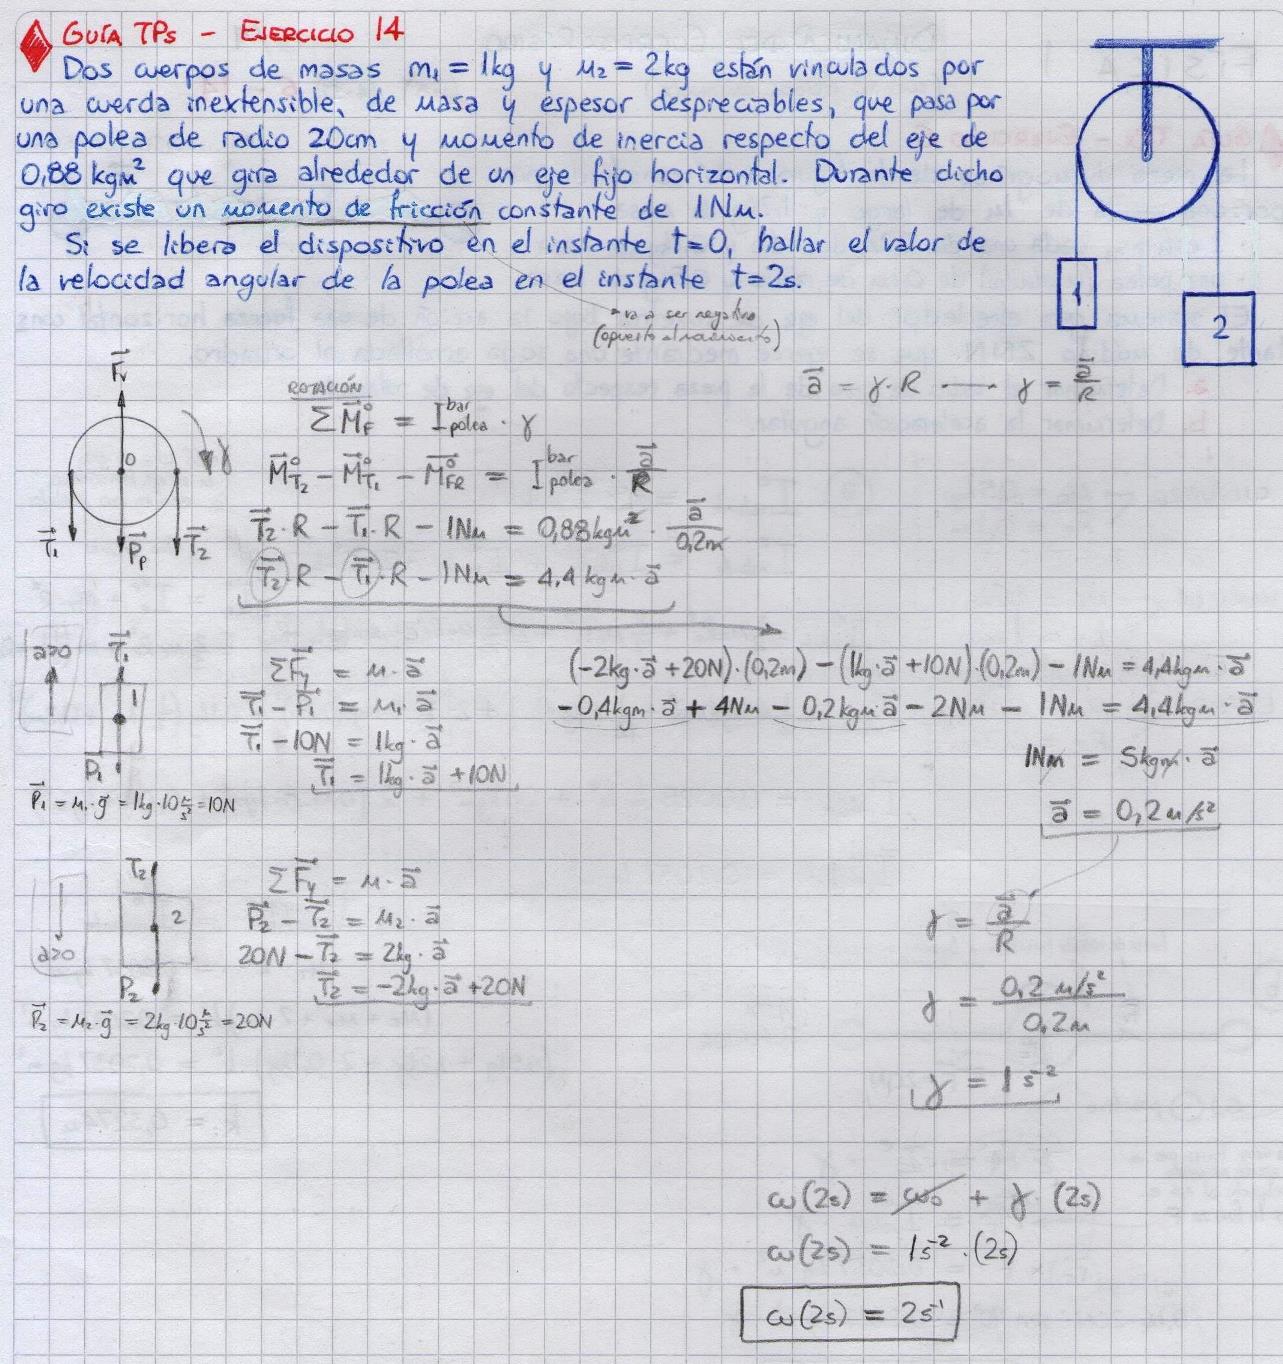 GUÍA TPs - EJERCICIO 14
Dos cuerpos de masas m₁ = 1kg y m₂ = 2kg están vinculados por
una cuerda inextensible, de masa y espesor despreciables, que pasa por
una polea de radio 20cm y momento de inercia respecto del eje de
0,88 kgm² que gira alrededor de un eje fijo horizontal. Durante dicho
giro existe un momento de fricción constante de 1Nm.
Si se libera el dispositivo en el instante t=0, hallar el valor de
la velocidad angular de la polea en el instante t=2s.
1
2
va a ser negativo
(opuesto al movimiento)
F⃗v
0
γ
T⃗₁
P⃗p
T⃗₂
ROTACIÓN
ΣM⃗°F = I bar polea · γ
M⃗°T₂ - M⃗°T₁ - M⃗°FR = I bar polea · a⃗/R
T⃗₂·R - T⃗₁·R - 1Nm = 0,88kgm² · a⃗/0,2m
T⃗₂·R - T⃗₁·R - 1Nm = 4,4 kgm·a⃗
a⃗ = γ·R — γ = a⃗/R
a>0
T⃗₁
1
P⃗₁
P⃗₁ = m₁·g⃗ = 1kg·10 m/s² = 10N
ΣF⃗y = m·a⃗
T⃗₁ - P⃗₁ = m₁·a⃗
T⃗₁ - 10N = 1kg·a⃗
T⃗₁ = 1kg·a⃗ + 10N
(-2kg·a⃗ + 20N)·(0,2m) - (1kg·a⃗ + 10N)·(0,2m) - 1Nm = 4,4kgm·a⃗
-0,4kgm·a⃗ + 4Nm - 0,2kgm·a⃗ - 2Nm - 1Nm = 4,4kgm·a⃗
1Nm = 5kgm·a⃗
a⃗ = 0,2 m/s²
a>0
T₂
2
P₂
P⃗₂ = m₂·g⃗ = 2kg·10 m/s² = 20N
ΣF⃗y = m·a⃗
P⃗₂ - T⃗₂ = m₂·a⃗
20N - T⃗₂ = 2kg·a⃗
T⃗₂ = -2kg·a⃗ + 20N
γ = a⃗/R
γ = 0,2 m/s² / 0,2m
γ = 1 s⁻²
ω(2s) = ω₀ + γ (2s)
ω(2s) = 1s⁻²·(2s)
ω(2s) = 2s⁻¹